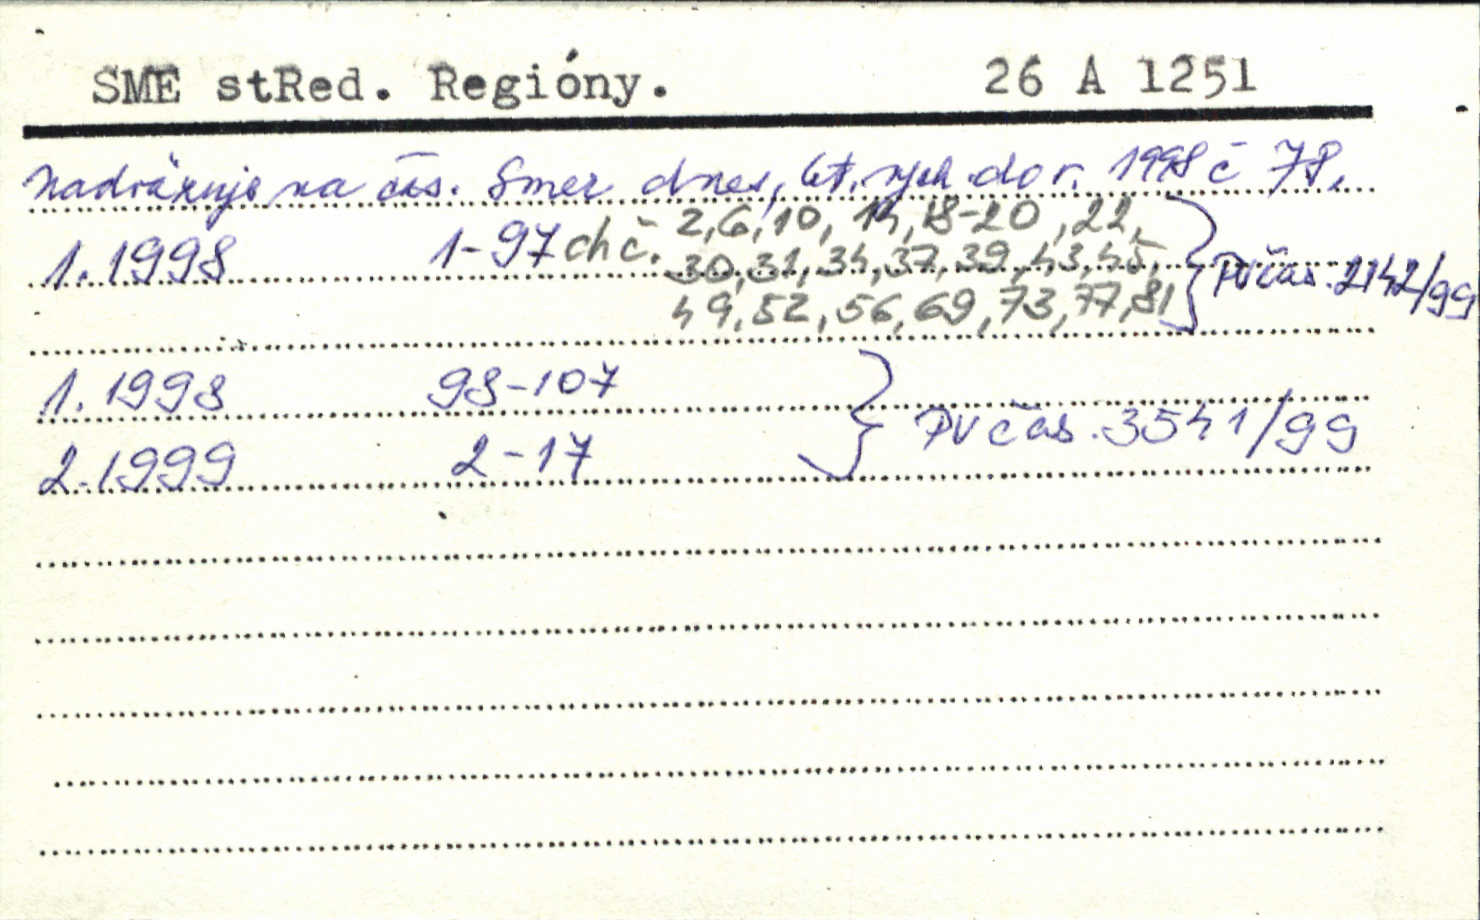 SME stRed. Regióny. 26 A 1251
Nadväzuje na čas. Smer dnes, vych. do r. 1998 č 78.
1. 1998 1-97 chč. 2, 6, 10, 14, 18-20, 22,
30, 31, 34, 37, 39, 43, 45, PV čas. 2142/99
49, 52, 56, 69, 73, 77, 81
1. 1998 98-107
PV čas. 3541/99
2. 1999 2-17